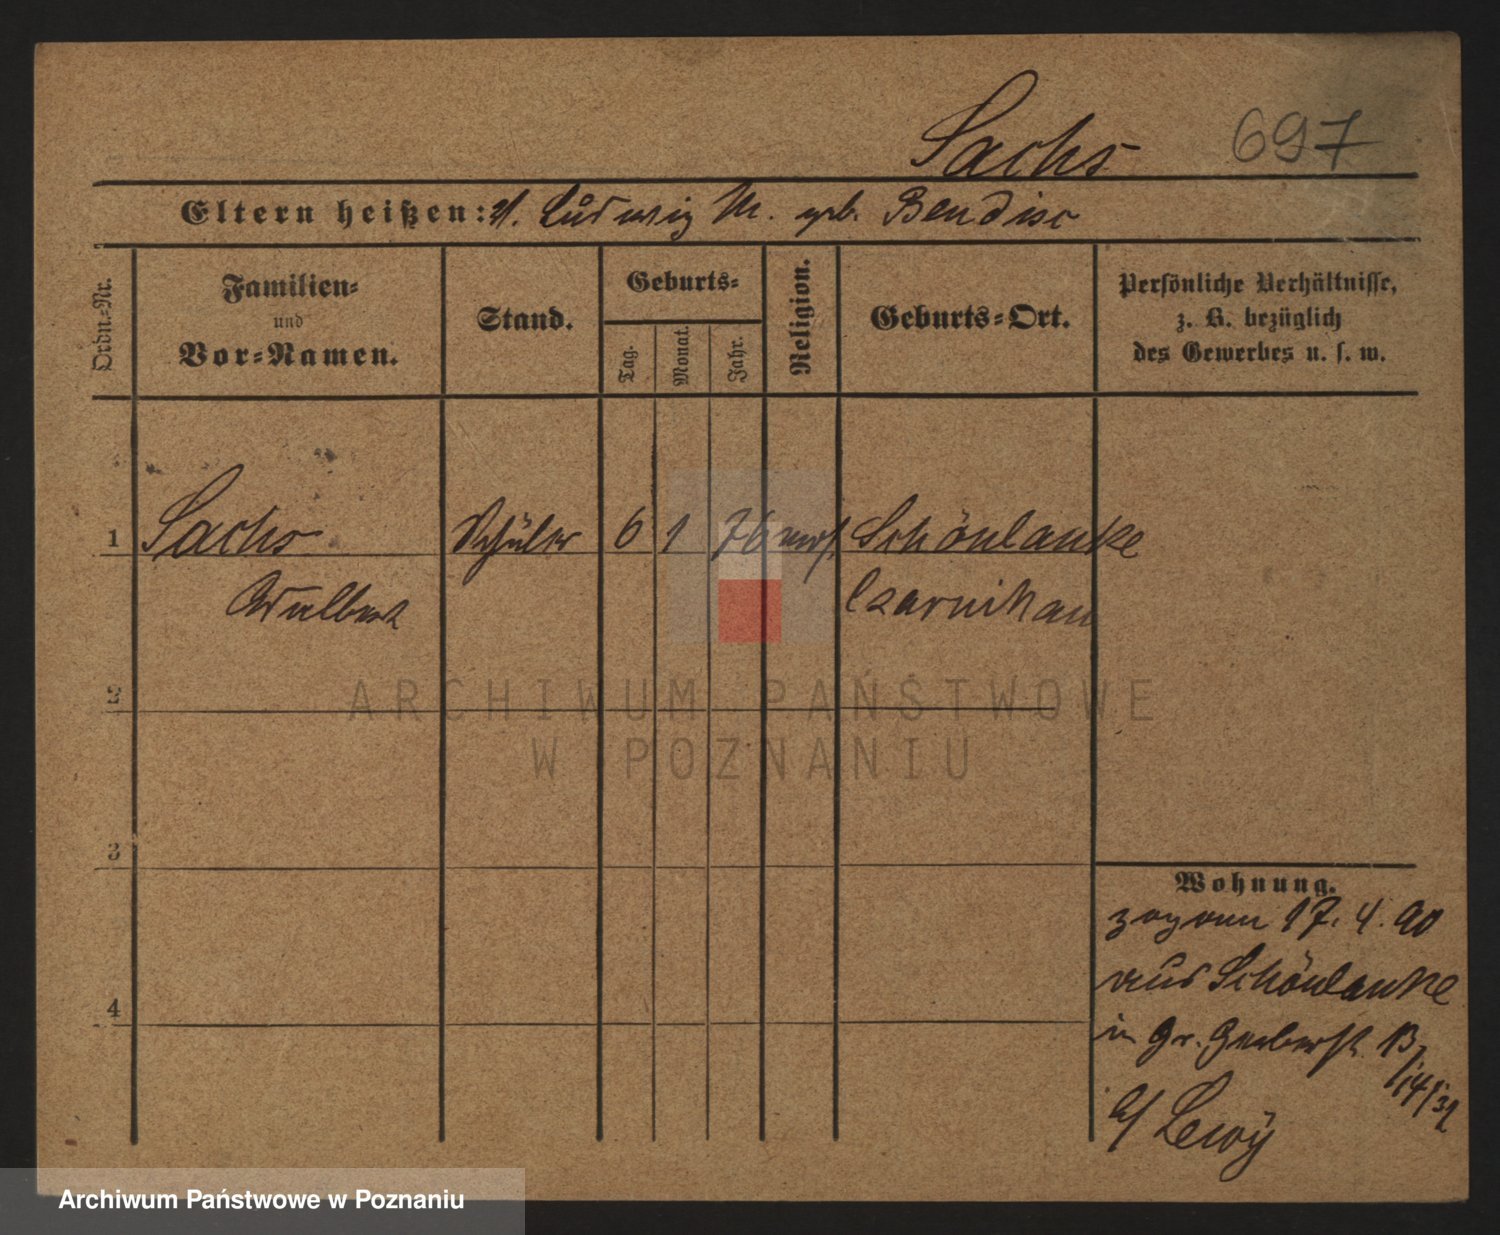 Sachs 697
Eltern heißen: V. Ludwig M. geb. Bendix
Ordn.-Nr.
Familien-
und
Vor-Namen.
Stand.
Geburts-
Tag.
Monat.
Jahr.
Religion.
Geburts-Ort.
Persönliche Verhältnisse,
z. B. bezüglich
des Gewerbes u. s. w.
1 Sachs Schüler 6 1 76 mos. Schönlanke
Czarnikau
2
3
4
Wohnung.
zugezogen 17. 4. 90
aus Schönlanke
in Gr. Gerberstr.
b/ Lewy
ARCHIWUM PAŃSTWOWE
W POZNANIU
Archiwum Państwowe w Poznaniu